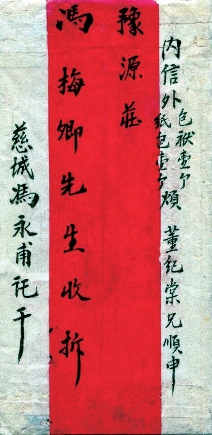 内信外包袱壹个纸包壹个煩 董紀棠兄順申
豫源莊
馮梅卿先生收拆
慈城馮永甫託干